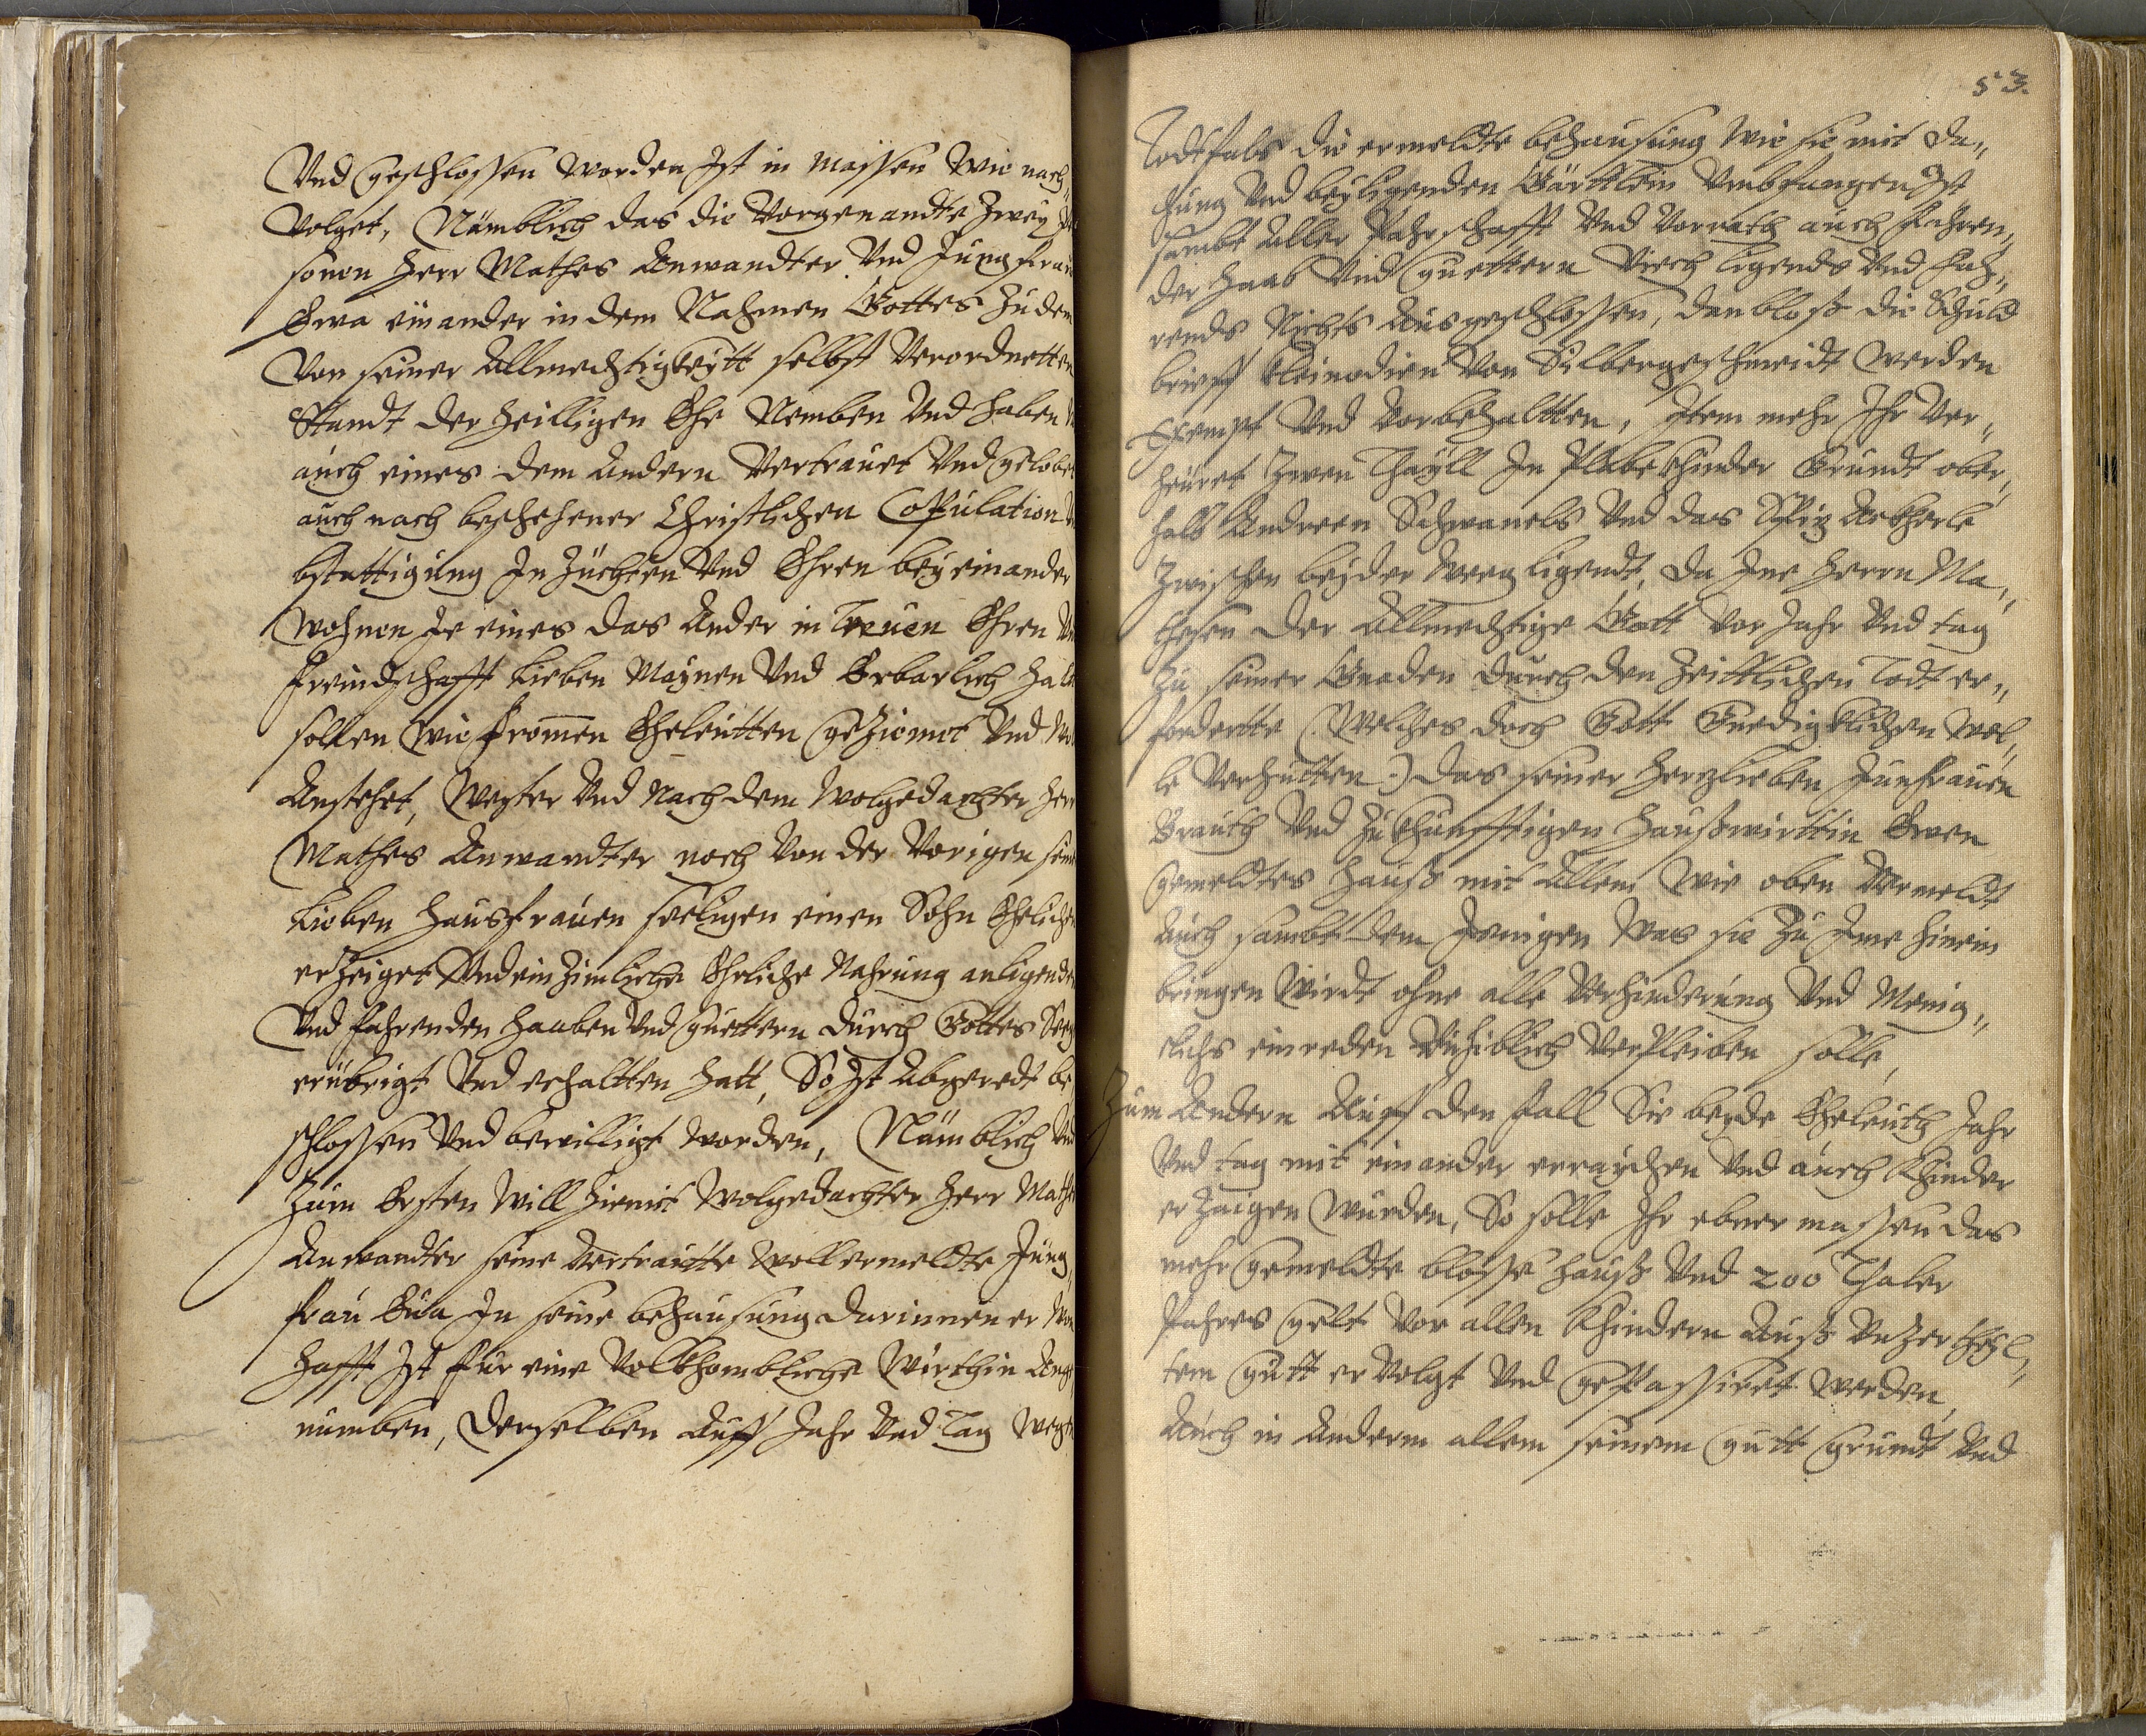 Vnd geschlossen worden Ist in massen Wie nach„
Volget, Nämblich das die Vorgenandte Zwey
sonen Herr Mathes Anwandter Vnd Jungfrau
Eva einander in dem Nahmen Gottes Zu dem
Von seiner Allmechtigkeytt selbst Verordnetten
Standt der Heilligen Ehe Nemben Vnd haben
auch eines dem Andern Vertrauet Vnd gelobet
auch nach beschehener Christlichen Copulation
bstettigung In Züchten Vnd Ehren bey einander
Wohnen Je eines das Ander in Treuen Ehren
freindschafft Lieben Maynen Vnd Erbarlich
sollen Wie fromen Eheleutten geziemet Vnd
Anstehet, Weyter Vnd Nach dem Wolgedachter Herr
Mathes Anwandter noch Von der Vorigen seiner
Lieben Hausfrauen seeligen einen Sohn Ehelichen
erzeiget Vnd ein Zimliche Ehrliche Nahrung an ligenden
Vnd fahrenden Haaben Vnd guettern durch Gottes Seeg
erübrigt Vnd erhaltten hatt, So Ist Abgeredt be
schlossen Vnd bewilligt worden, Nämblich Vnd
Zum Ersten Will hiemit Wolgedachter Herr Mathes
Anwandter seine Vertrautte Wollermeldte Jung„
frau Eva In seine behausung darinnen er Won
hafft Ist für eine Volkhombliche Würthin Ange
numben, derselben Auff Jahr Vnd Tag
53.
Todtfals die ermeldte behausung Wie sie mit
fung Vnd beyligenden Gärttlein Vmbfangen Ist
sambt Aller Pahrschafft Vnd Vorrath auch fahren„
der Haab Vnd guettern Viech ligends Vnd fah„
rends Nichts Ausgeschlossen, dan bloß die Schuld
brieff Kleinodien Von Silbergeschmeidt Werden
Exempt Vnd Vorbehaltten, Item mehr Ihr Ver„
heüret Zwen Thayll In Grundt ober„
halb Andreen Schwanels Vnd das Spiz Ackherle
Zwischen beyder Weeg ligendt, da Ine Herrn Ma„
thesen der Allmechtige Gott Vor Jahr Vnd tag
Zu seiner Gnaden durch den Zeittlichen Todt er„
fordertte (: Welches doch Gott Gnedigklichen Wel„
le Verhütten :) das seiner Herzlieben Junfrauen
Brauth Vnd Zukhunfftigen Haußwirttin Even
gemeldtes Hauß mit Allem Wie oben Vermeldt
Auch sambt dem Jenigen Was sie Zu Ime hinein
bringen Wirdt ohne alle Verhinderung Vnd Menig„
clichs einreden Ruhiblich Verpleiben solle,
Zum Andern Auff den fall Sie beyde Eheleuth Jahr
Vnd tag mit einander erraichen Vnd auch Khinder
erzaigen Wurden, So solle Ihr ebner massen das
mehr gemeldte blosse Hauß Vnd 200 Thaler
Pahres gelt Vor allen Khindern Auß Vnzertheyl„
tem gutt erVolgt Vnd gePassiret Werden,
Auch in Anderm allem seinem gutt grundt Vnd